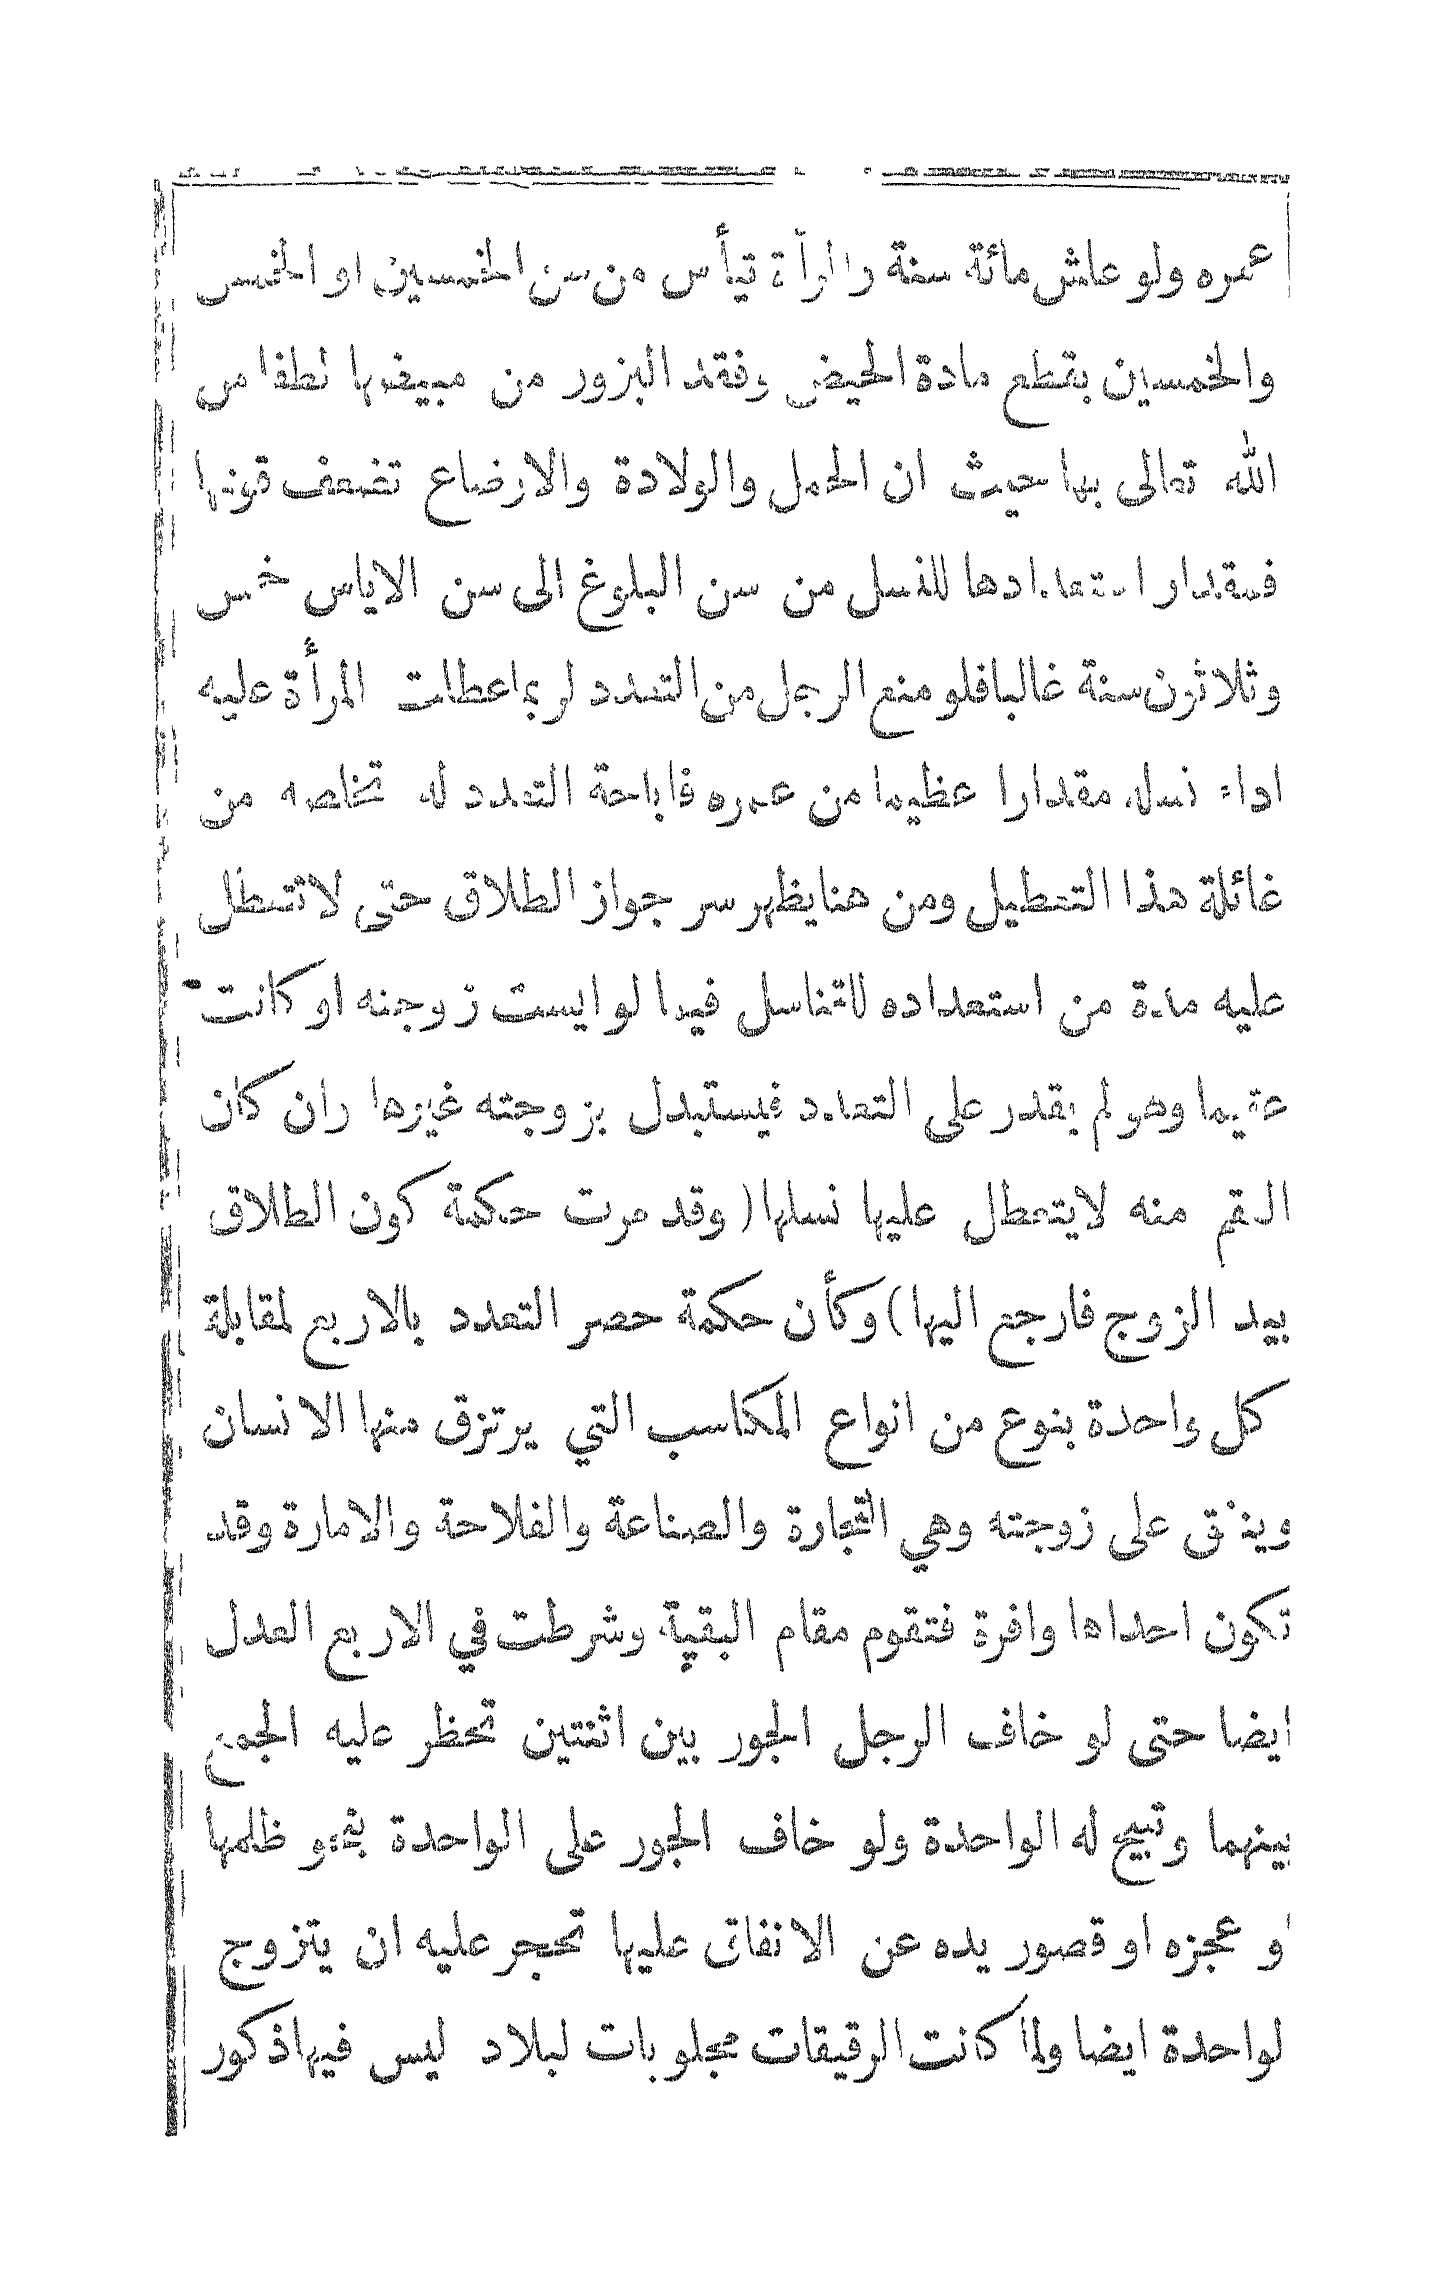 عمره ولو عاش مائة سنة والمرأة تيأس من سن الخمسين او الخمس
والخمسين بقطع مادة الحيض وفقد البزور من مبيضها لطفا من
الله تعالى بها حيث ان الحمل والولادة والارضاع تضعف قوتها
فمقدار استعدادها للنسل من سن البلوغ الى سن الاياس خمس
وثلاثون سنة غالبا فلو منع الرجل من التعدد لربما عطلت المرأة عليه
اداء نسله مقدارا عظيما من عمره فاباحة التعدد له تخلصه من
غائلة هذا التعطيل ومن هنا يظهر سر جواز الطلاق حتى لا تتعطل
عليه مدة من استعداده للتناسل فيما لو ايست زوجته او كانت
عقيما وهو لم يقدر على التعدد فيستبدل بزوجته غيرها وان كان
العقم منه لا يتعطل عليها نسلها ( وقد مرت حكمة كون الطلاق
بيد الزوج فارجع اليها ) وكأن حكمة حصر التعدد بالاربع لمقابلة
كل واحدة بنوع من انواع المكاسب التي يرتزق منها الانسان
وينفق على زوجته وهي التجارة والصناعة والفلاحة والامارة وقد
تكون احداها وافرة فتقوم مقام البقية وشرطت في الاربع العدل
ايضا حتى لو خاف الرجل الجور بين اثنتين تحظر عليه الجمع
بينهما وتبيح له الواحدة ولو خاف الجور على الواحدة بنحو ظلمها
او عجزه او قصور يده عن الانفاق عليها تحجر عليه ان يتزوج
لواحدة ايضا ولما كانت الرقيقات مجلوبات لبلاد ليس فيها ذكور